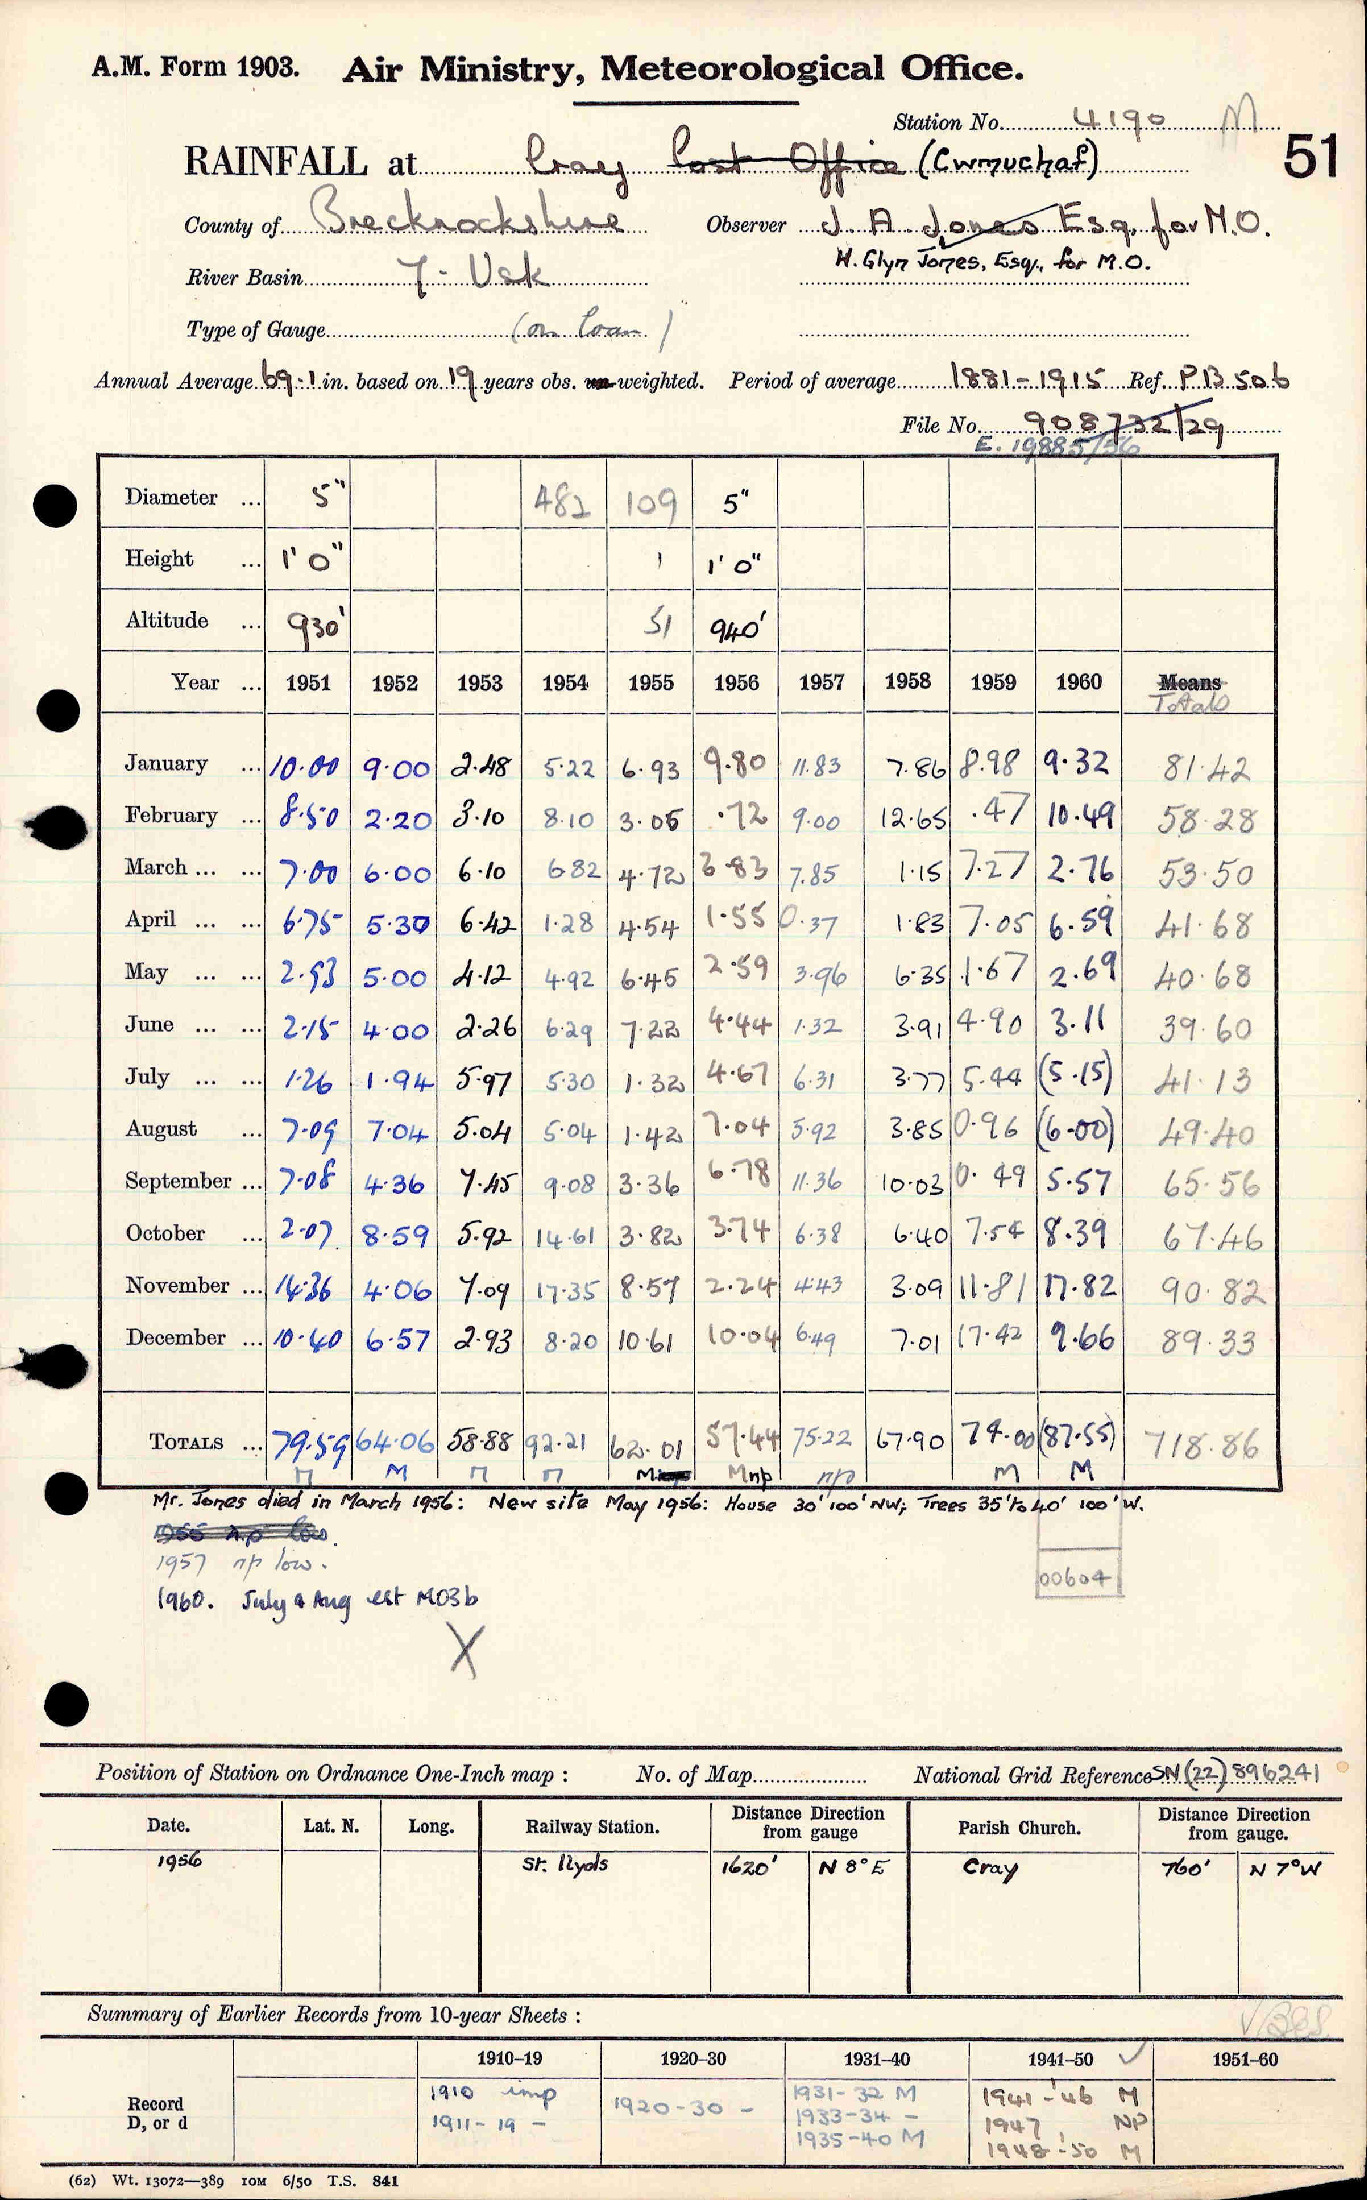 A.M. Form 1903. Air Ministry, Meteorological Office.
Station No. 4190 M
51
RAINFALL at Cray Post Office (Cwmuchaf)
County of Brecknockshire Observer J. A. Jones Esq. for M.O.
River Basin 7 - Usk H. Glyn Jones, Esq., for M.O.
Type of Gauge (on loan)
Annual Average 69.1 in. based on 19 years obs. un-weighted. Period of average 1881-1915 Ref. PB 506
File No. 908732/29
E. 19885/56
Diameter ... 5" 482 109 5"
Height ... 1' 0" 1 1' 0"
Altitude ... 930' 51 940'
Year ... 1951 1952 1953 1954 1955 1956 1957 1958 1959 1960 Means
Totals
January ... 10.00 9.00 2.48 5.22 6.93 9.80 11.83 7.86 8.98 9.32 81.42
February ... 8.50 2.20 3.10 8.10 3.05 .72 9.00 12.65 .47 10.49 58.28
March ... ... 7.00 6.00 6.10 6.82 4.72 3.83 7.85 1.15 7.27 2.76 53.50
April ... ... 6.75 5.30 6.42 1.28 4.54 1.55 0.37 1.83 7.05 6.59 41.68
May ... ... 2.93 5.00 4.12 4.92 6.45 2.59 3.96 6.35 1.67 2.69 40.68
June ... ... 2.15 4.00 2.26 6.29 7.22 4.44 1.32 3.91 4.90 3.11 39.60
July ... ... 1.26 1.94 5.97 5.30 1.32 4.67 6.31 3.77 5.44 (5.15) 41.13
August ... 7.09 7.04 5.04 5.04 1.42 7.04 5.92 3.85 0.96 (6.00) 49.40
September ... 7.08 4.36 7.45 9.08 3.36 6.78 11.36 10.03 0.49 5.57 65.56
October ... 2.07 8.59 5.92 14.61 3.82 3.74 6.38 6.40 7.54 8.39 67.46
November ... 14.36 4.06 7.09 17.35 8.57 2.24 4.43 3.09 11.81 17.82 90.82
December ... 10.40 6.57 2.93 8.20 10.61 10.04 6.49 7.01 17.42 9.66 89.33
TOTALS ... 79.59 64.06 58.88 92.21 62.01 57.44 75.22 67.90 74.00 (87.55) 718.86
M M M M M Mnp np M M
Mr. Jones died in March 1956: New site May 1956: House 30' 100' NW; Trees 35' to 40' 100' W.
1955 np low.
1957 np low.
00604
1960. July & Aug est MO3b
X
Position of Station on Ordnance One-Inch map : No. of Map National Grid Reference SN(22) 896241
Date. Lat. N. Long. Railway Station. Distance Direction from gauge Parish Church. Distance Direction from gauge.
1956 1620' N 8° E Cray 760' N 7° W
Summary of Earlier Records from 10-year Sheets :
1910-19 1920-30 1931-40 1941-50 ✓ 1951-60
Record D, or d
1910 imp
1911-19 -
1920-30 -
1931-32 M
1933-34 -
1935-40 M
1941-'46 M
1947 NP
1948-'50 M
(62) Wt. 13072—389 10M 6/50 T.S. 841